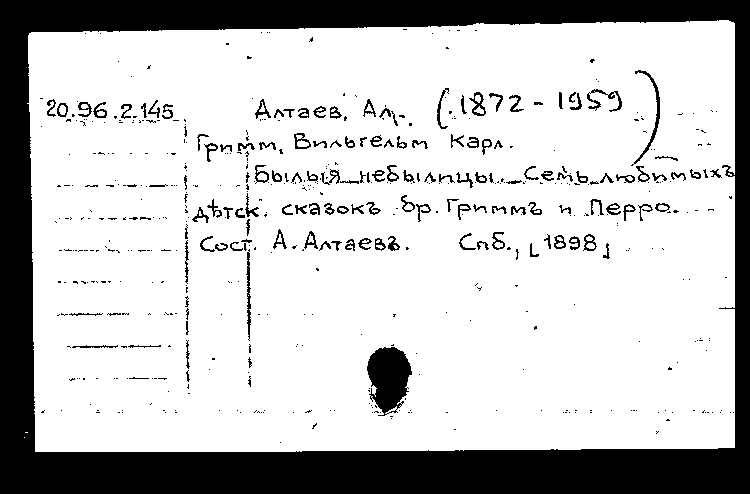 20.96.2.145 Алтаев, Ал. (1872 - 1959)
Гримм, Вильгельм Карл.
Былыя небылицы. Семь любимыхъ
дѣтск. сказокъ бр. Гриммъ и Перро.
Сост. А. Алтаевъ. Спб., [1898]